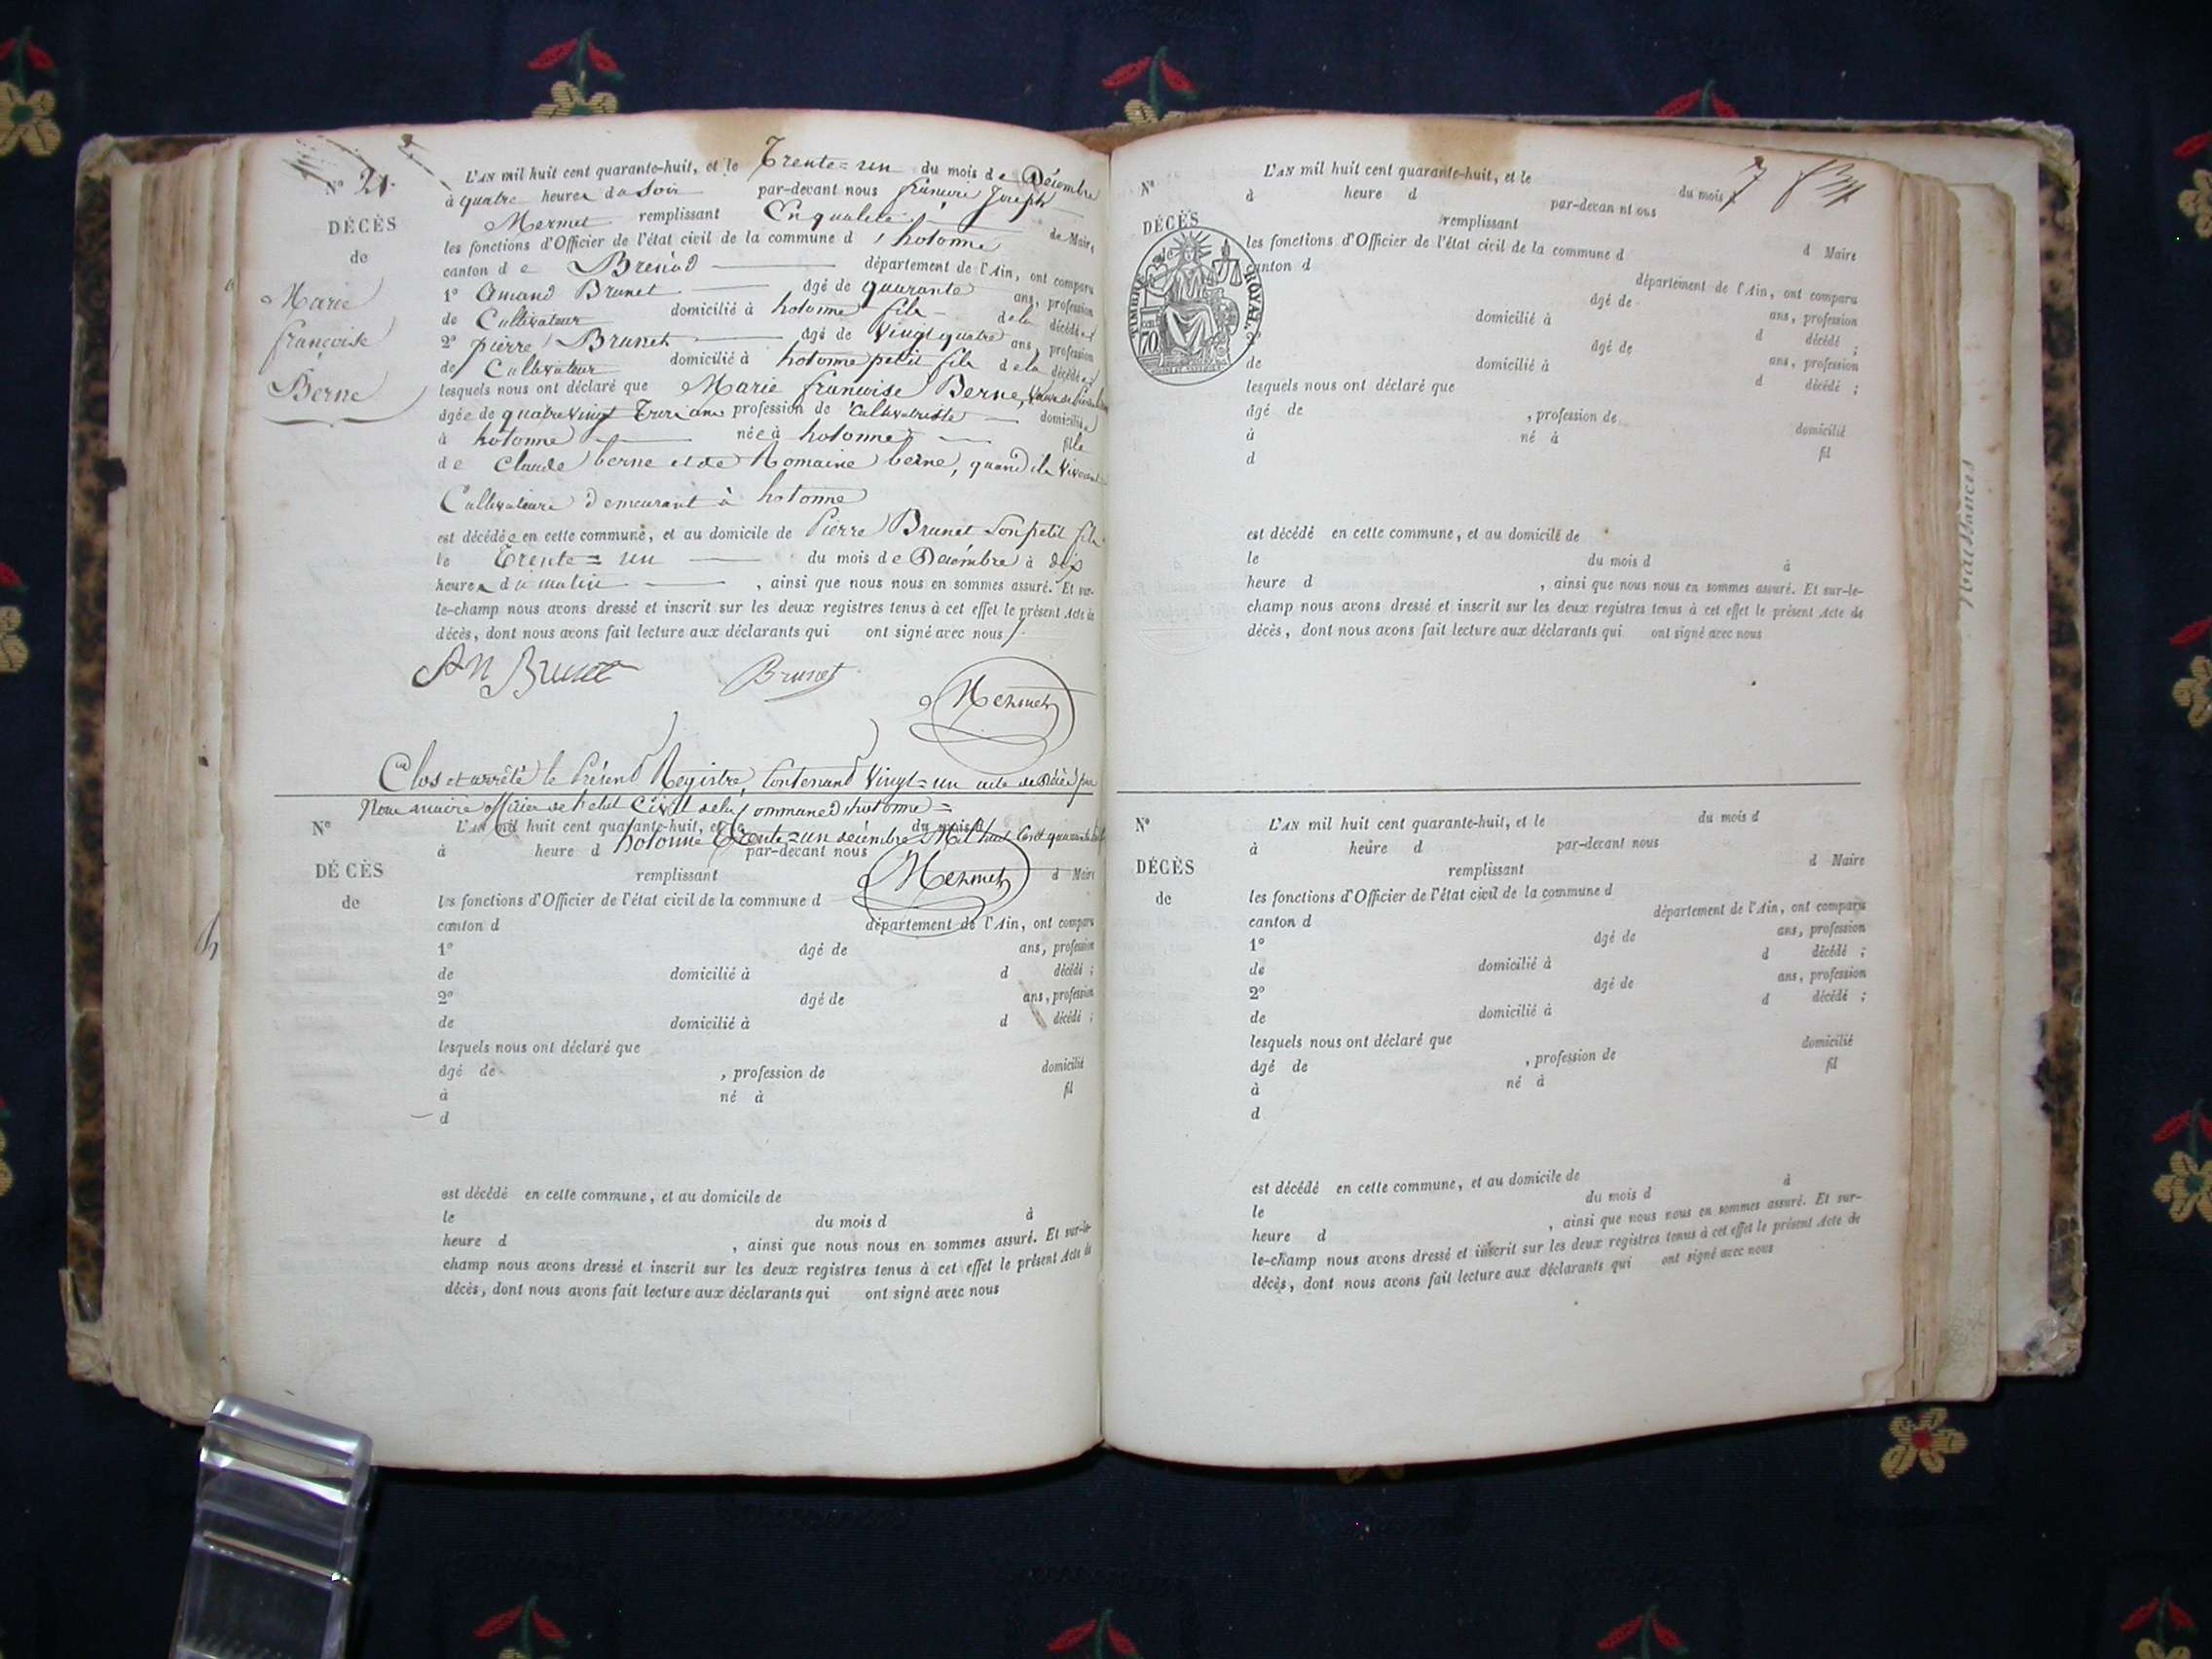 N° 21.
DÉCÈS
de
Marie
françoise
Berne
L'AN mil huit cent quarante-huit, et le Trente=un du mois de Décembre
à quatre heures du soir par-devant nous françois Joseph
Mermet remplissant En qualité de Maire
les fonctions d'Officier de l'état civil de la commune d'hotonne
canton de Brenod département de l'Ain, ont comparu
1° Amand Brunet âgé de quarante ans, profession
de Cultivateur domicilié à hotonne fils de la décédée
2° pierre Brunet âgé de Vingt quatre ans, profession
de Cultivateur domicilié à hotonne petit fils de la décédée
lesquels nous ont déclaré que Marie françoise Berne,
âgée de quatre vingt Trois ans profession de Cultivatrice domiciliée
à hotonne née à hotonne fille
de Claude berne et de Romaine berne, quand ils vivaient
Cultivateurs demeurant à hotonne
est décédée en cette commune, et au domicile de Pierre Brunet Son petit fils
le Trente=un du mois de Décembre à dix
heures du matin , ainsi que nous nous en sommes assuré. Et sur-
le-champ nous avons dressé et inscrit sur les deux registres tenus à cet effet le présent Acte de
décès, dont nous avons fait lecture aux déclarants qui ont signé avec nous
An Brunet Brunet Mermet
Clos et arrêté le Présent Registre, Contenant Vingt=un acte de Décès par
Nous maire officier de l'etat Civil de la Commune d'hotonne=
hotonne Trente=un décembre Mil huit Cent quarante huit
Mermet
N°
DÉCÈS
de
L'AN mil huit cent quarante-huit, et le du mois d
à heure d par-devant nous
remplissant d Maire
les fonctions d'Officier de l'état civil de la commune d
canton d département de l'Ain, ont comparu
1° âgé de ans, profession
de domicilié à d décédé ;
2° âgé de ans, profession
de domicilié à d décédé ;
lesquels nous ont déclaré que
âgé de , profession de domicilié
à né à fil
d
est décédé en cette commune, et au domicile de
le du mois d à
heure d , ainsi que nous nous en sommes assuré. Et sur-le-
champ nous avons dressé et inscrit sur les deux registres tenus à cet effet le présent Acte de
décès, dont nous avons fait lecture aux déclarants qui ont signé avec nous
7
N°
DÉCÈS
TIMBRE ROYAL.
70
L'AN mil huit cent quarante-huit, et le du mois d
d heure d par-devan nt ous
remplissant d Maire
les fonctions d'Officier de l'état civil de la commune d
canton d département de l'Ain, ont comparu
âgé de ans, profession
domicilié à d décédé ;
2° âgé de ans, profession
de domicilié à d décédé ;
lesquels nous ont déclaré que
âgé de , profession de domicilié
à né à fil
d
est décédé en cette commune, et au domicile de
le du mois d à
heure d , ainsi que nous nous en sommes assuré. Et sur-le-
champ nous avons dressé et inscrit sur les deux registres tenus à cet effet le présent Acte de
décès, dont nous avons fait lecture aux déclarants qui ont signé avec nous
N°
DÉCÈS
de
L'AN mil huit cent quarante-huit, et le du mois d
à heure d par-devant nous
remplissant d Maire
les fonctions d'Officier de l'état civil de la commune d
canton d département de l'Ain, ont comparu
1° âgé de ans, profession
de domicilié à d décédé ;
2° âgé de ans, profession
de domicilié à d décédé ;
lesquels nous ont déclaré que
âgé de , profession de domicilié
à né à fil
d
est décédé en cette commune, et au domicile de
le du mois d à
heure d , ainsi que nous nous en sommes assuré. Et sur-
le-champ nous avons dressé et inscrit sur les deux registres tenus à cet effet le présent Acte de
décès, dont nous avons fait lecture aux déclarants qui ont signé avec nous
Naissances